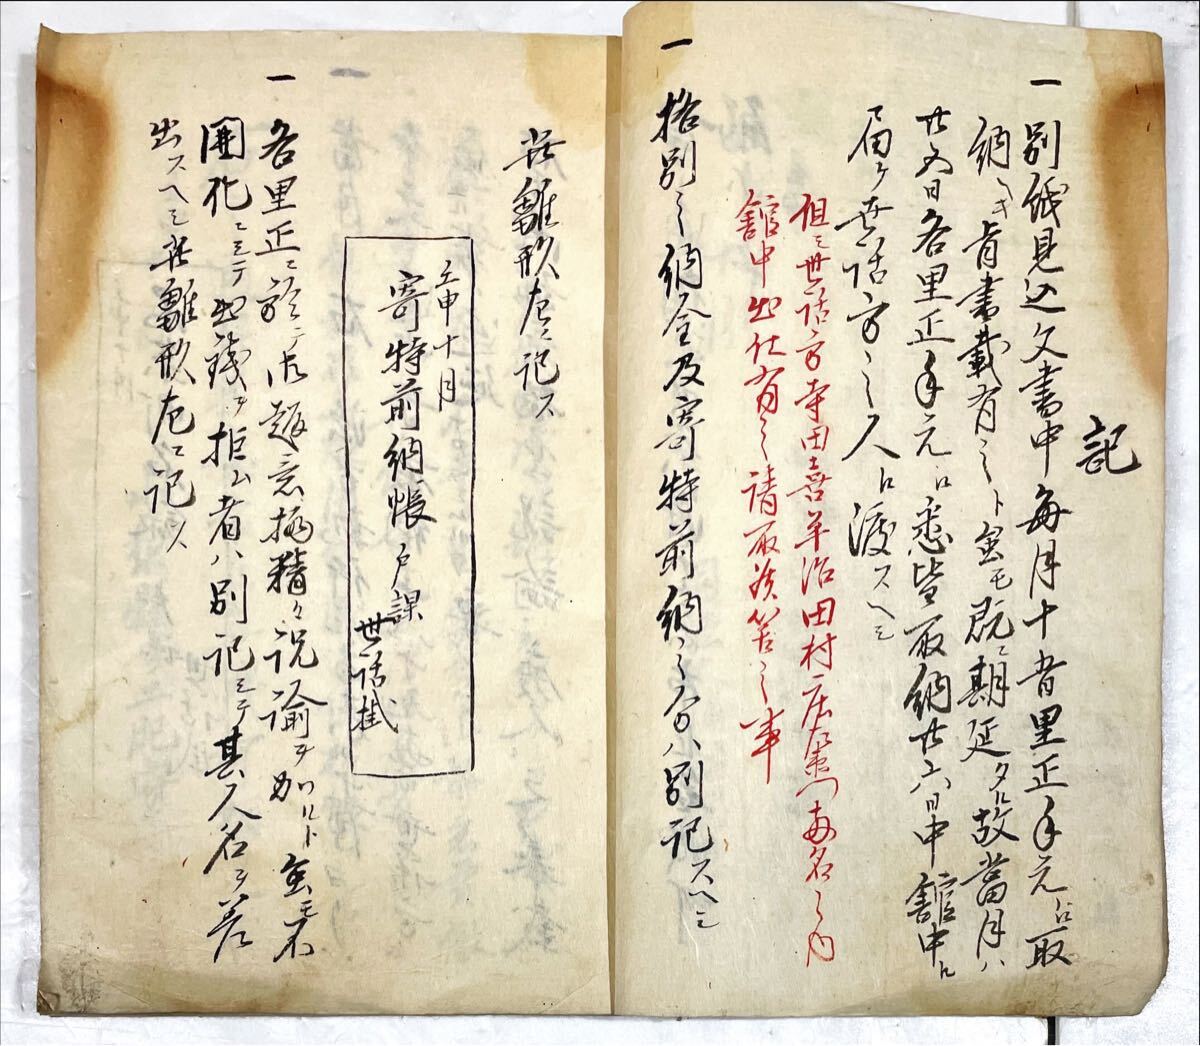 記
一 別紙見込文書中毎月十五日里正手元ニ取
納ヘキ旨書載有之ト𪜈既ニ期延タル故當月ハ
廿五日各里正手元ニ悉皆取納廿六日中館中ニ
届ケ世話方之人ニ渡スヘシ
但シ世話方寺田喜平治田村庄左衛門両名之内
館中出仕有之請取候筈之事
一 格別之納金及寄特前納之分ハ別記スヘシ
其雛形左ニ記ス
壬申十月
寄特前納帳 戸課
世話掛
一 各里正ニ於テ御趣意柄精々説諭ヲ加ルト𪜈不
開化ニシテ出銭ヲ拒ム者ハ別記シテ其人名ヲ差
出スヘシ其雛形左ニ記ス